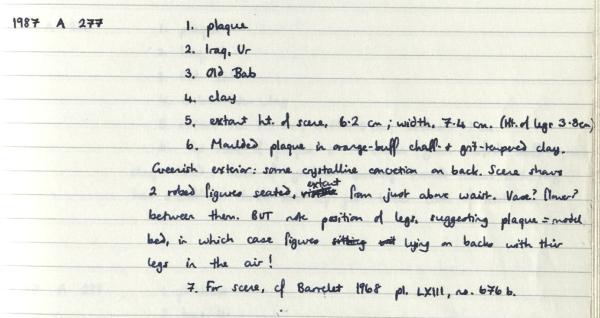 1987 A 277 1. plaque
2. Iraq, Ur
3. Old Bab
4. clay
5. extant ht. of scene, 6.2 cm; width, 7.4 cm. (Ht. of legs 3.8cm)
6. Moulded plaque in orange-buff chaff- + grit-tempered clay.
Greenish exterior: some crystalline concretion on back. Scene shows
2 robed figures seated, extant from just above waist. Vase? flower?
between them. BUT note position of legs, suggesting plaque = model
bed, in which case figures sitting lying on backs with their
legs in the air!
7. For scene, cf Barrelet 1968 pl. LXIII, no. 676 b.